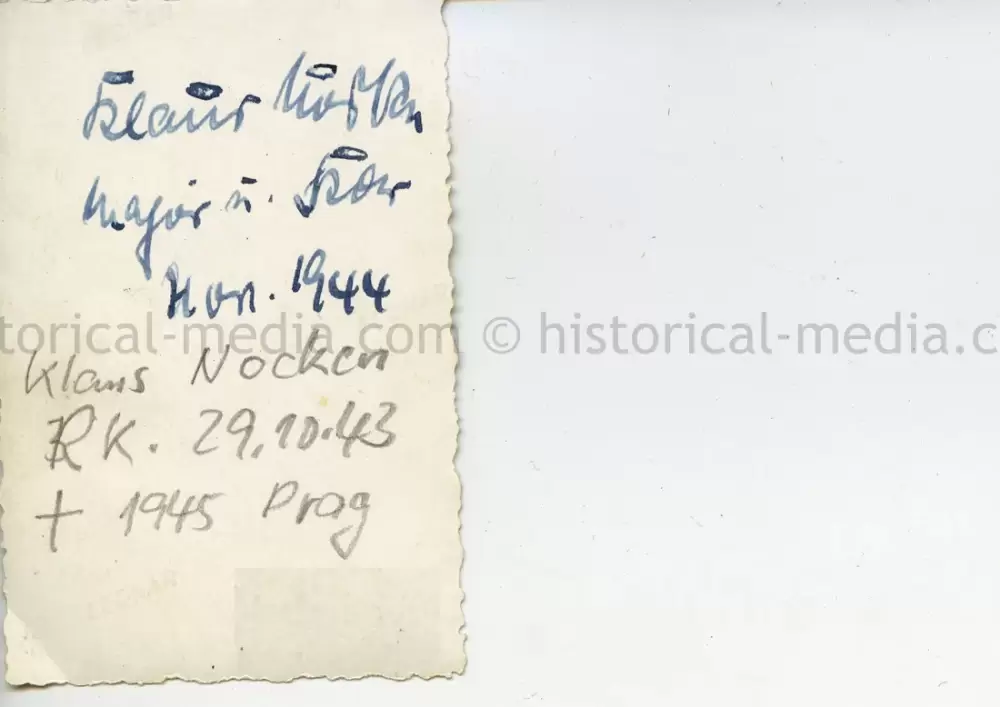 Klaus Nocken
Major u. Kdr
Nov. 1944
torical-media.com © historical-media.c
Klaus Nocken
RK. 29.10.43
+ 1945 Prag